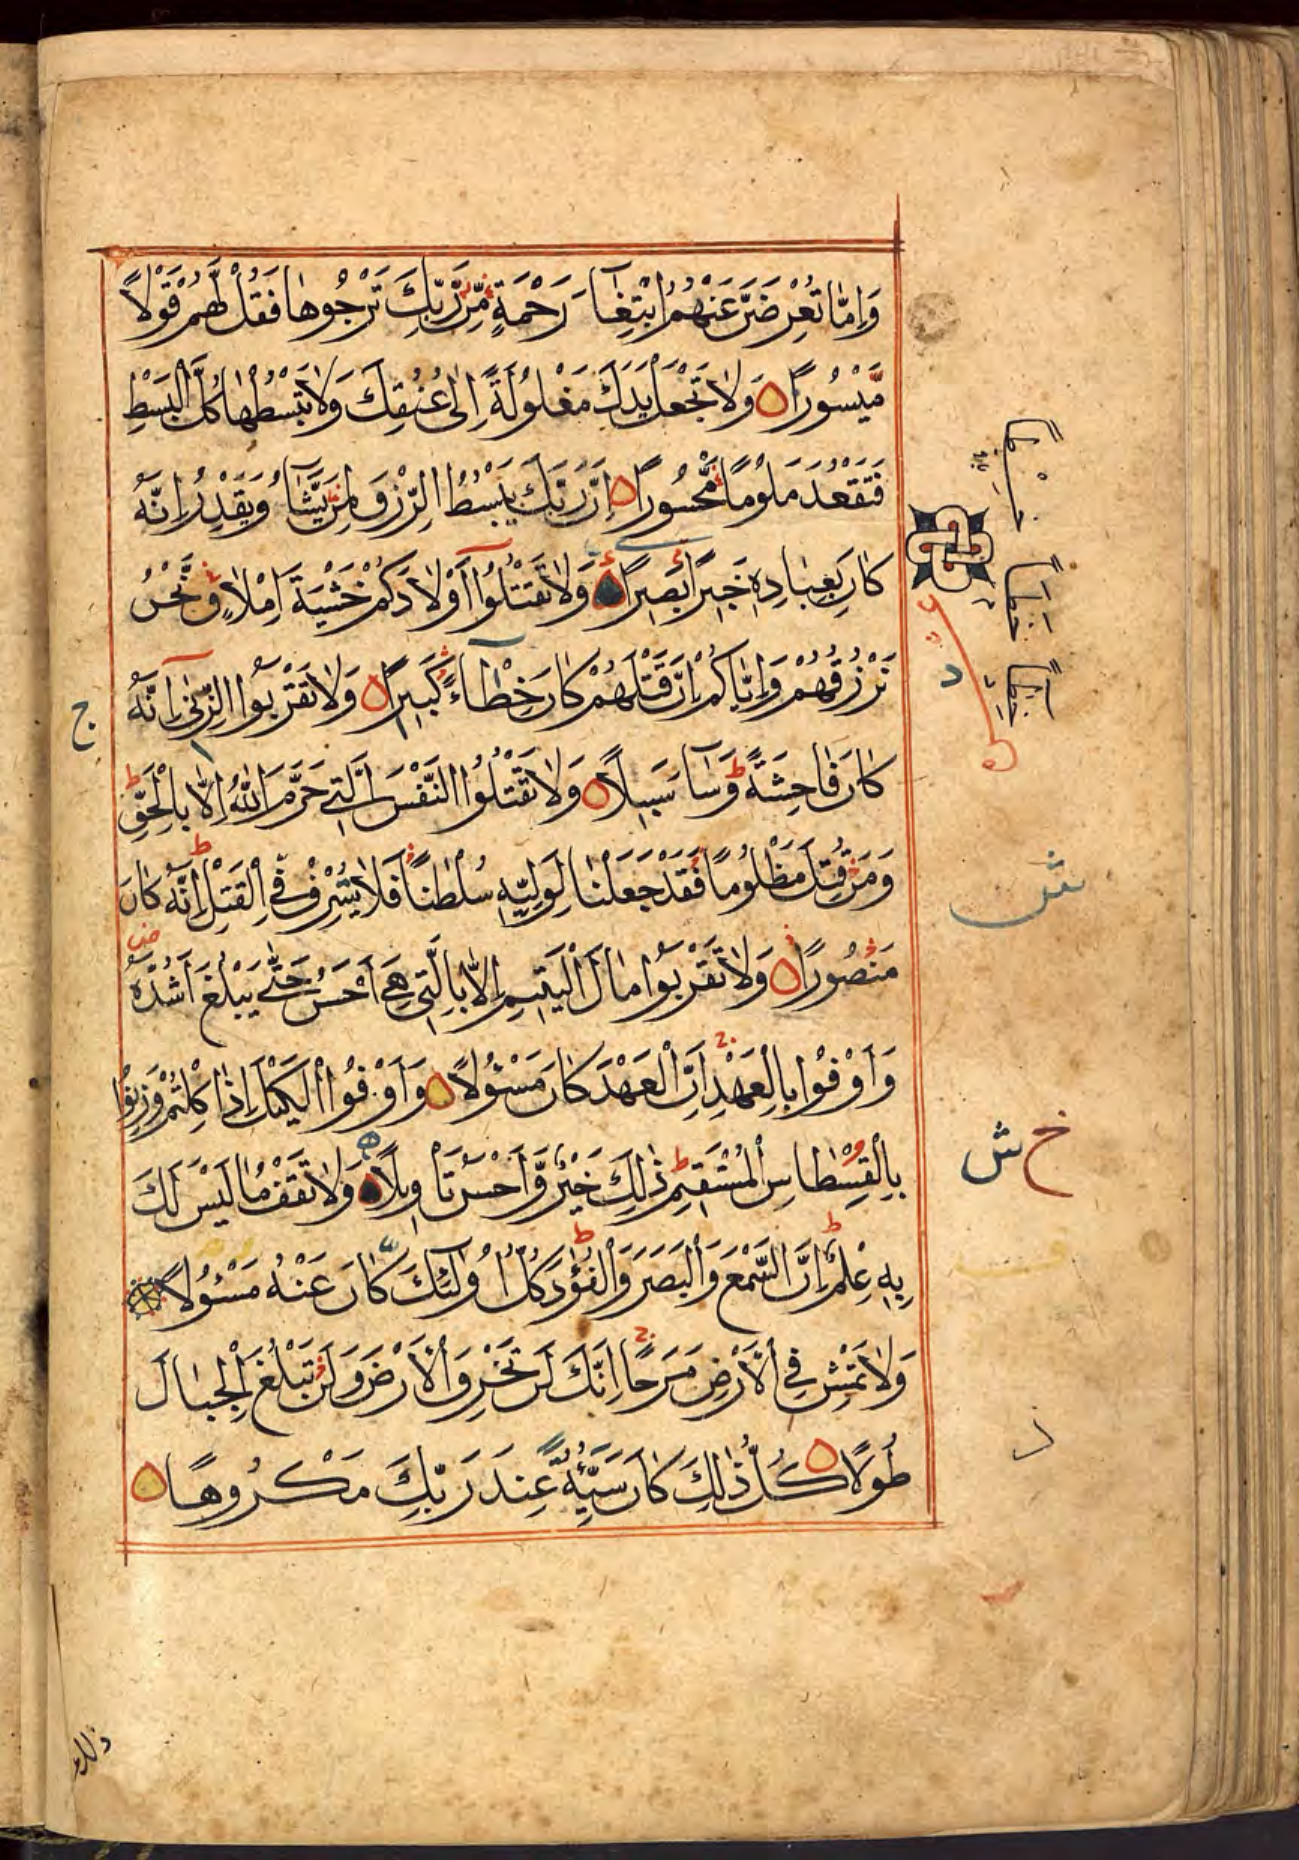 وَاِمَّا تُعْرِضَنَّ عَنْهُمُ ابْتِغَآءَ رَحْمَةٍ مِّنْ رَّبِّكَ تَرْجُوهَا فَقُلْ لَهُمْ قَوْلًا
مَّيْسُورًا وَلَا تَجْعَلْ يَدَكَ مَغْلُولَةً اِلٰى عُنُقِكَ وَلَا تَبْسُطْهَا كُلَّ الْبَسْطِ
فَتَقْعُدَ مَلُومًا مَّحْسُورًا اِنَّ رَبَّكَ يَبْسُطُ الرِّزْقَ لِمَنْ يَّشَآءُ وَيَقْدِرُ اِنَّهُ
كَانَ بِعِبَادِهِ خَبِيرًا بَصِيرًا وَلَا تَقْتُلُوٓا اَوْلَادَكُمْ خَشْيَةَ اِمْلَاقٍ نَّحْنُ
نَرْزُقُهُمْ وَاِيَّاكُمْ اِنَّ قَتْلَهُمْ كَانَ خِطَآءً كَبِيرًا وَلَا تَقْرَبُوا الزِّنٰى اِنَّهُ
كَانَ فَاحِشَةً وَسَآءَ سَبِيلًا وَلَا تَقْتُلُوا النَّفْسَ الَّتِي حَرَّمَ اللّٰهُ اِلَّا بِالْحَقِّ
وَمَنْ قُتِلَ مَظْلُومًا فَقَدْ جَعَلْنَا لِوَلِيِّهِ سُلْطٰنًا فَلَا يُسْرِفْ فِي الْقَتْلِ اِنَّهُ كَانَ
مَنْصُورًا وَلَا تَقْرَبُوا مَالَ الْيَتِيمِ اِلَّا بِالَّتِي هِيَ اَحْسَنُ حَتّٰى يَبْلُغَ اَشُدَّهُ
وَاَوْفُوا بِالْعَهْدِ اِنَّ الْعَهْدَ كَانَ مَسْئُولًا وَاَوْفُوا الْكَيْلَ اِذَا كِلْتُمْ وَزِنُوا
بِالْقِسْطَاسِ الْمُسْتَقِيمِ ذٰلِكَ خَيْرٌ وَّاَحْسَنُ تَاْوِيلًا وَلَا تَقْفُ مَا لَيْسَ لَكَ
بِهِ عِلْمٌ اِنَّ السَّمْعَ وَالْبَصَرَ وَالْفُؤَادَ كُلُّ اُولٰٓئِكَ كَانَ عَنْهُ مَسْئُولًا
وَلَا تَمْشِ فِي الْاَرْضِ مَرَحًا اِنَّكَ لَنْ تَخْرِقَ الْاَرْضَ وَلَنْ تَبْلُغَ الْجِبَالَ
طُولًا كُلُّ ذٰلِكَ كَانَ سَيِّئُهُ عِنْدَ رَبِّكَ مَكْرُوهًا
ج
خ ش
ذلك